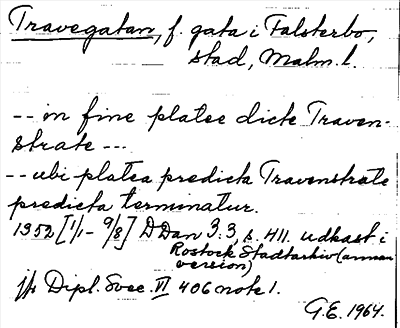 Travegatan, f. gata i Falsterbo,
stad, Malm. l.
-- in fine platee dicte Traven-
strate ---
-- ubi platea predicta Travenstrate
predicta terminatur.
1352 [1/1 - 9/8] D Dan 3.3, s. 411. Udkast i
Rostock Stadtarkiv (annan
version)
jfr Dipl. Svec. VI 406 note 1.
G.E. 1964.